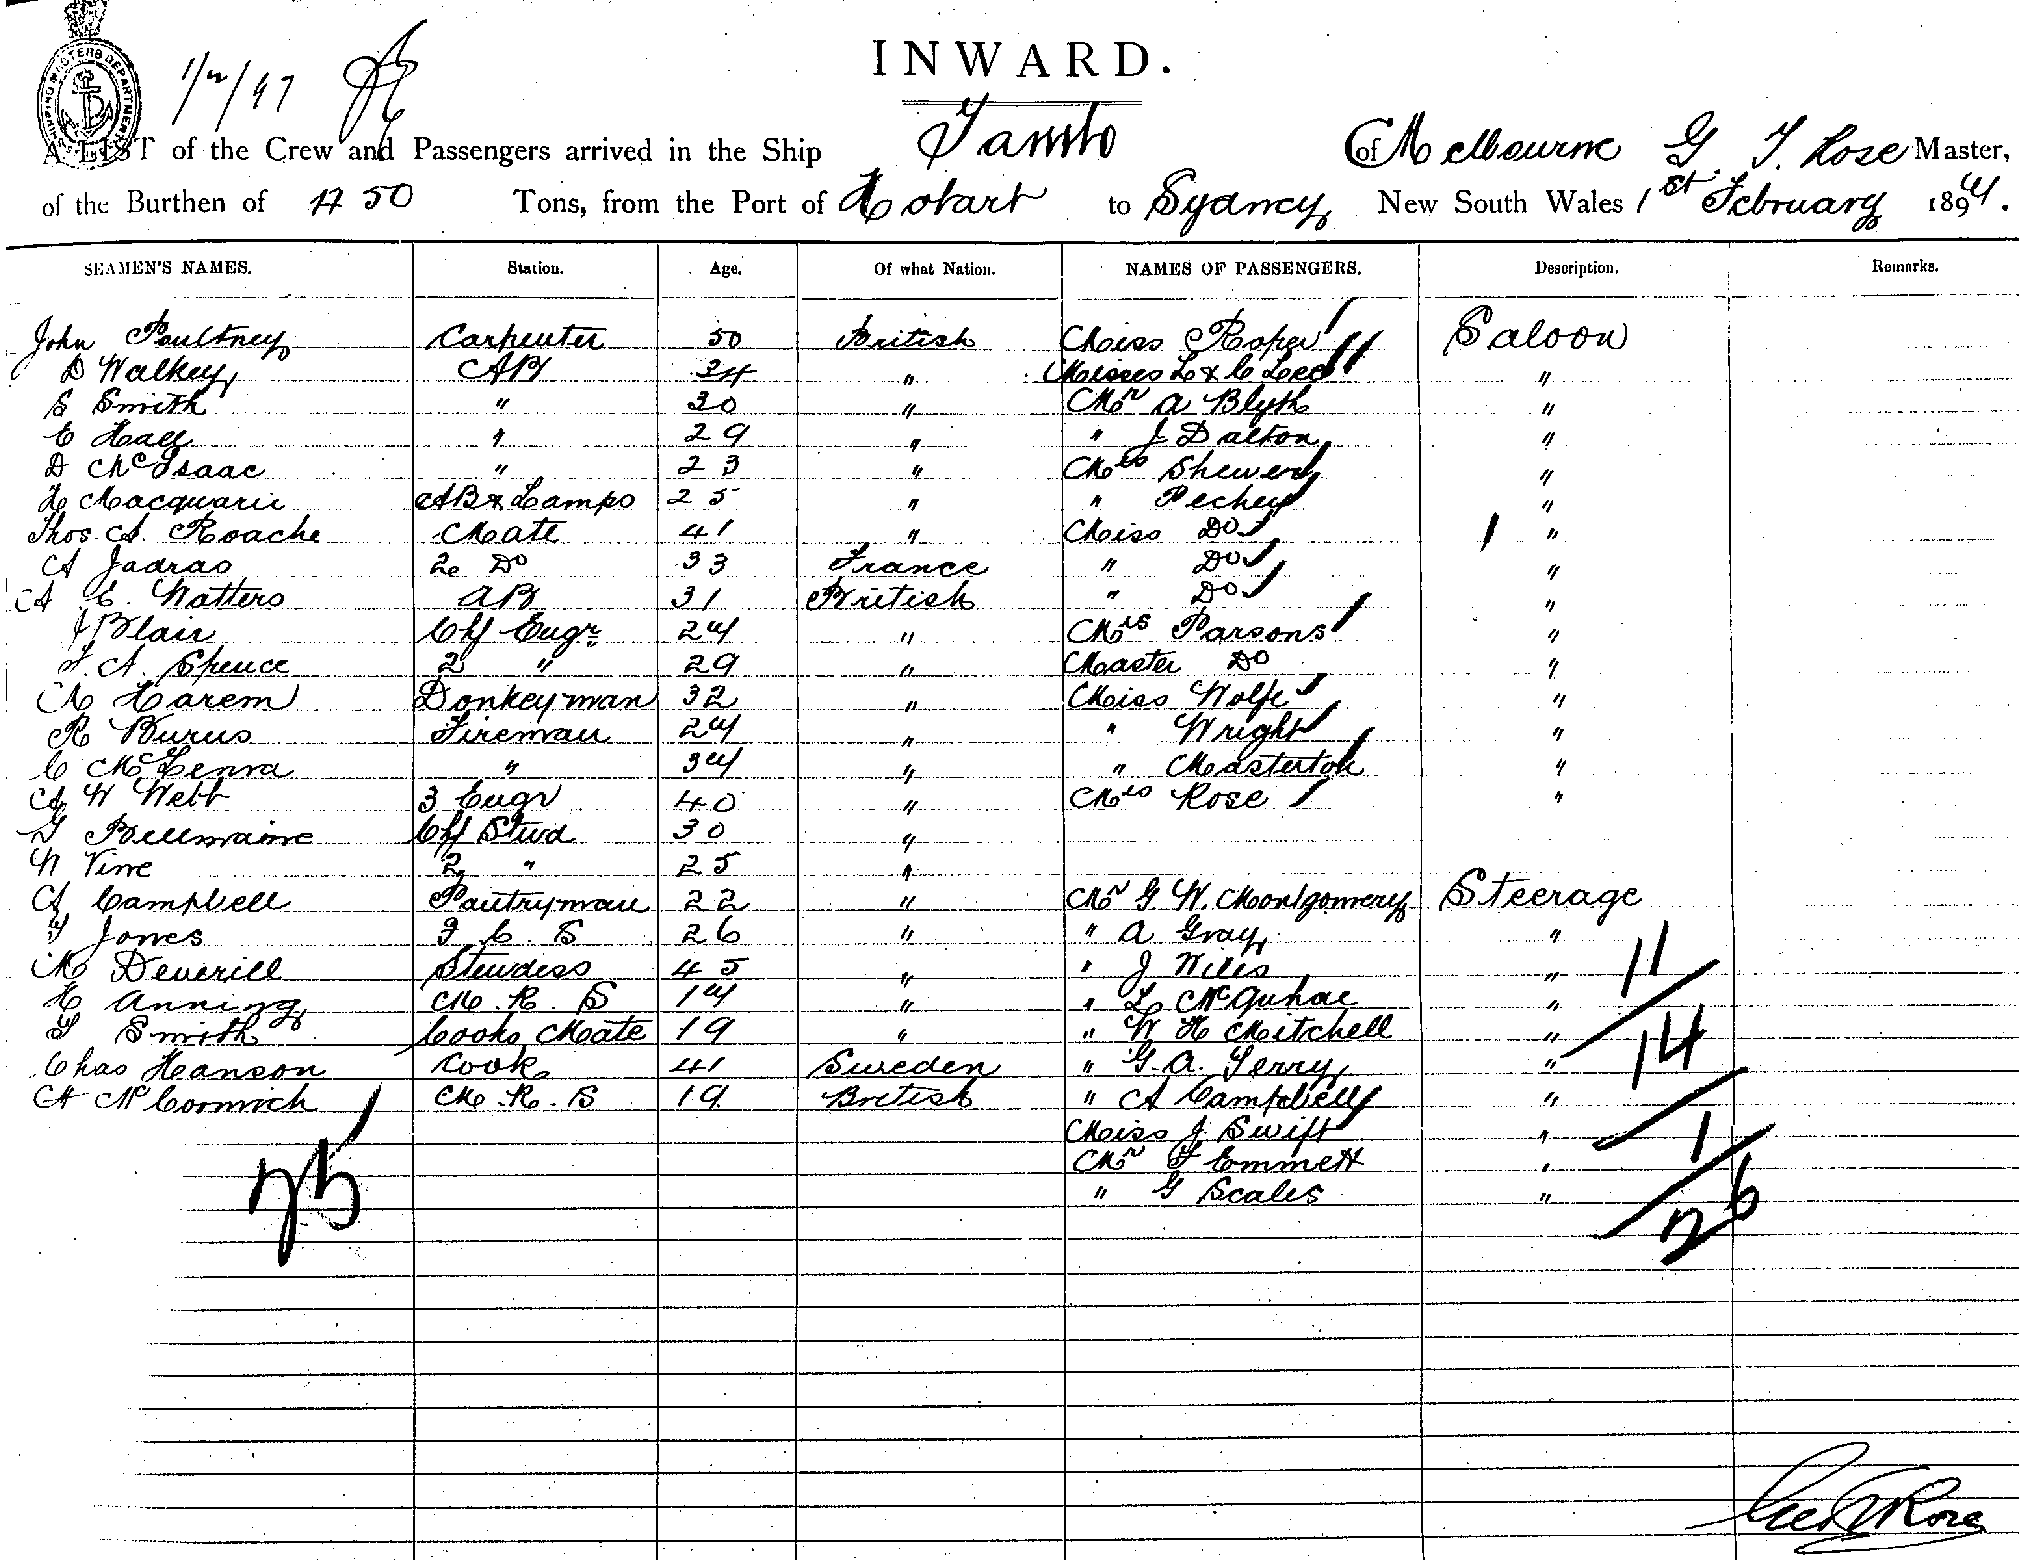 INWARD.
A LIST of the Crew and Passengers arrived in the Ship Tambo of Melbourne G T. Rose Master,
of the Burthen of 450 Tons, from the Port of Hobart to Sydney New South Wales 1st February 1894.
SEAMEN'S NAMES. Station. Age. Of what Nation. NAMES OF PASSENGERS. Description. Remarks.
John Poultney Carpenter 50 British Miss Roper Saloon
D Walkey AB 34 " Misses L & C Lee "
S Smith " 30 " Mr A Blyth "
C Hall " 29 " " J Dalton "
D McIsaac " 23 " Mrs "
H Macquarie AB & Lamps 25 " " Pechey "
Thos A. Roache Mate 41 " Miss Do "
A 2e Do 33 France " Do "
A E. Watters AB 31 British " Do "
J Blair Chf Engr 24 " Mrs Parsons "
A. Spence 2 " 29 " Master Do "
M Harem Donkeyman 32 " Miss Wolfe "
R Burns Fireman 24 " " Wright "
C " 34 " " Masterton "
A W Webb 3 Engr 40 " Mrs Rose "
Chf Stwd 30 "
W Vine 2 " 25 "
A Campbell Pantryman 22 " Mr G W. Montgomery Steerage
Jones F. C. S 26 " " A Gray "
M Deverill Stewdess 45 " " J Wiles "
H Anning M. R. S 14 " " L "
Smith Cooks Mate 19 " " W H Mitchell "
Chas Hanson Cook 41 Sweden " G. A. Terry "
A McCormick M. R. S 19 British " A Campbell "
Miss J Swift "
Mr Emmett "
" G Scales "
25
11
14
1
26